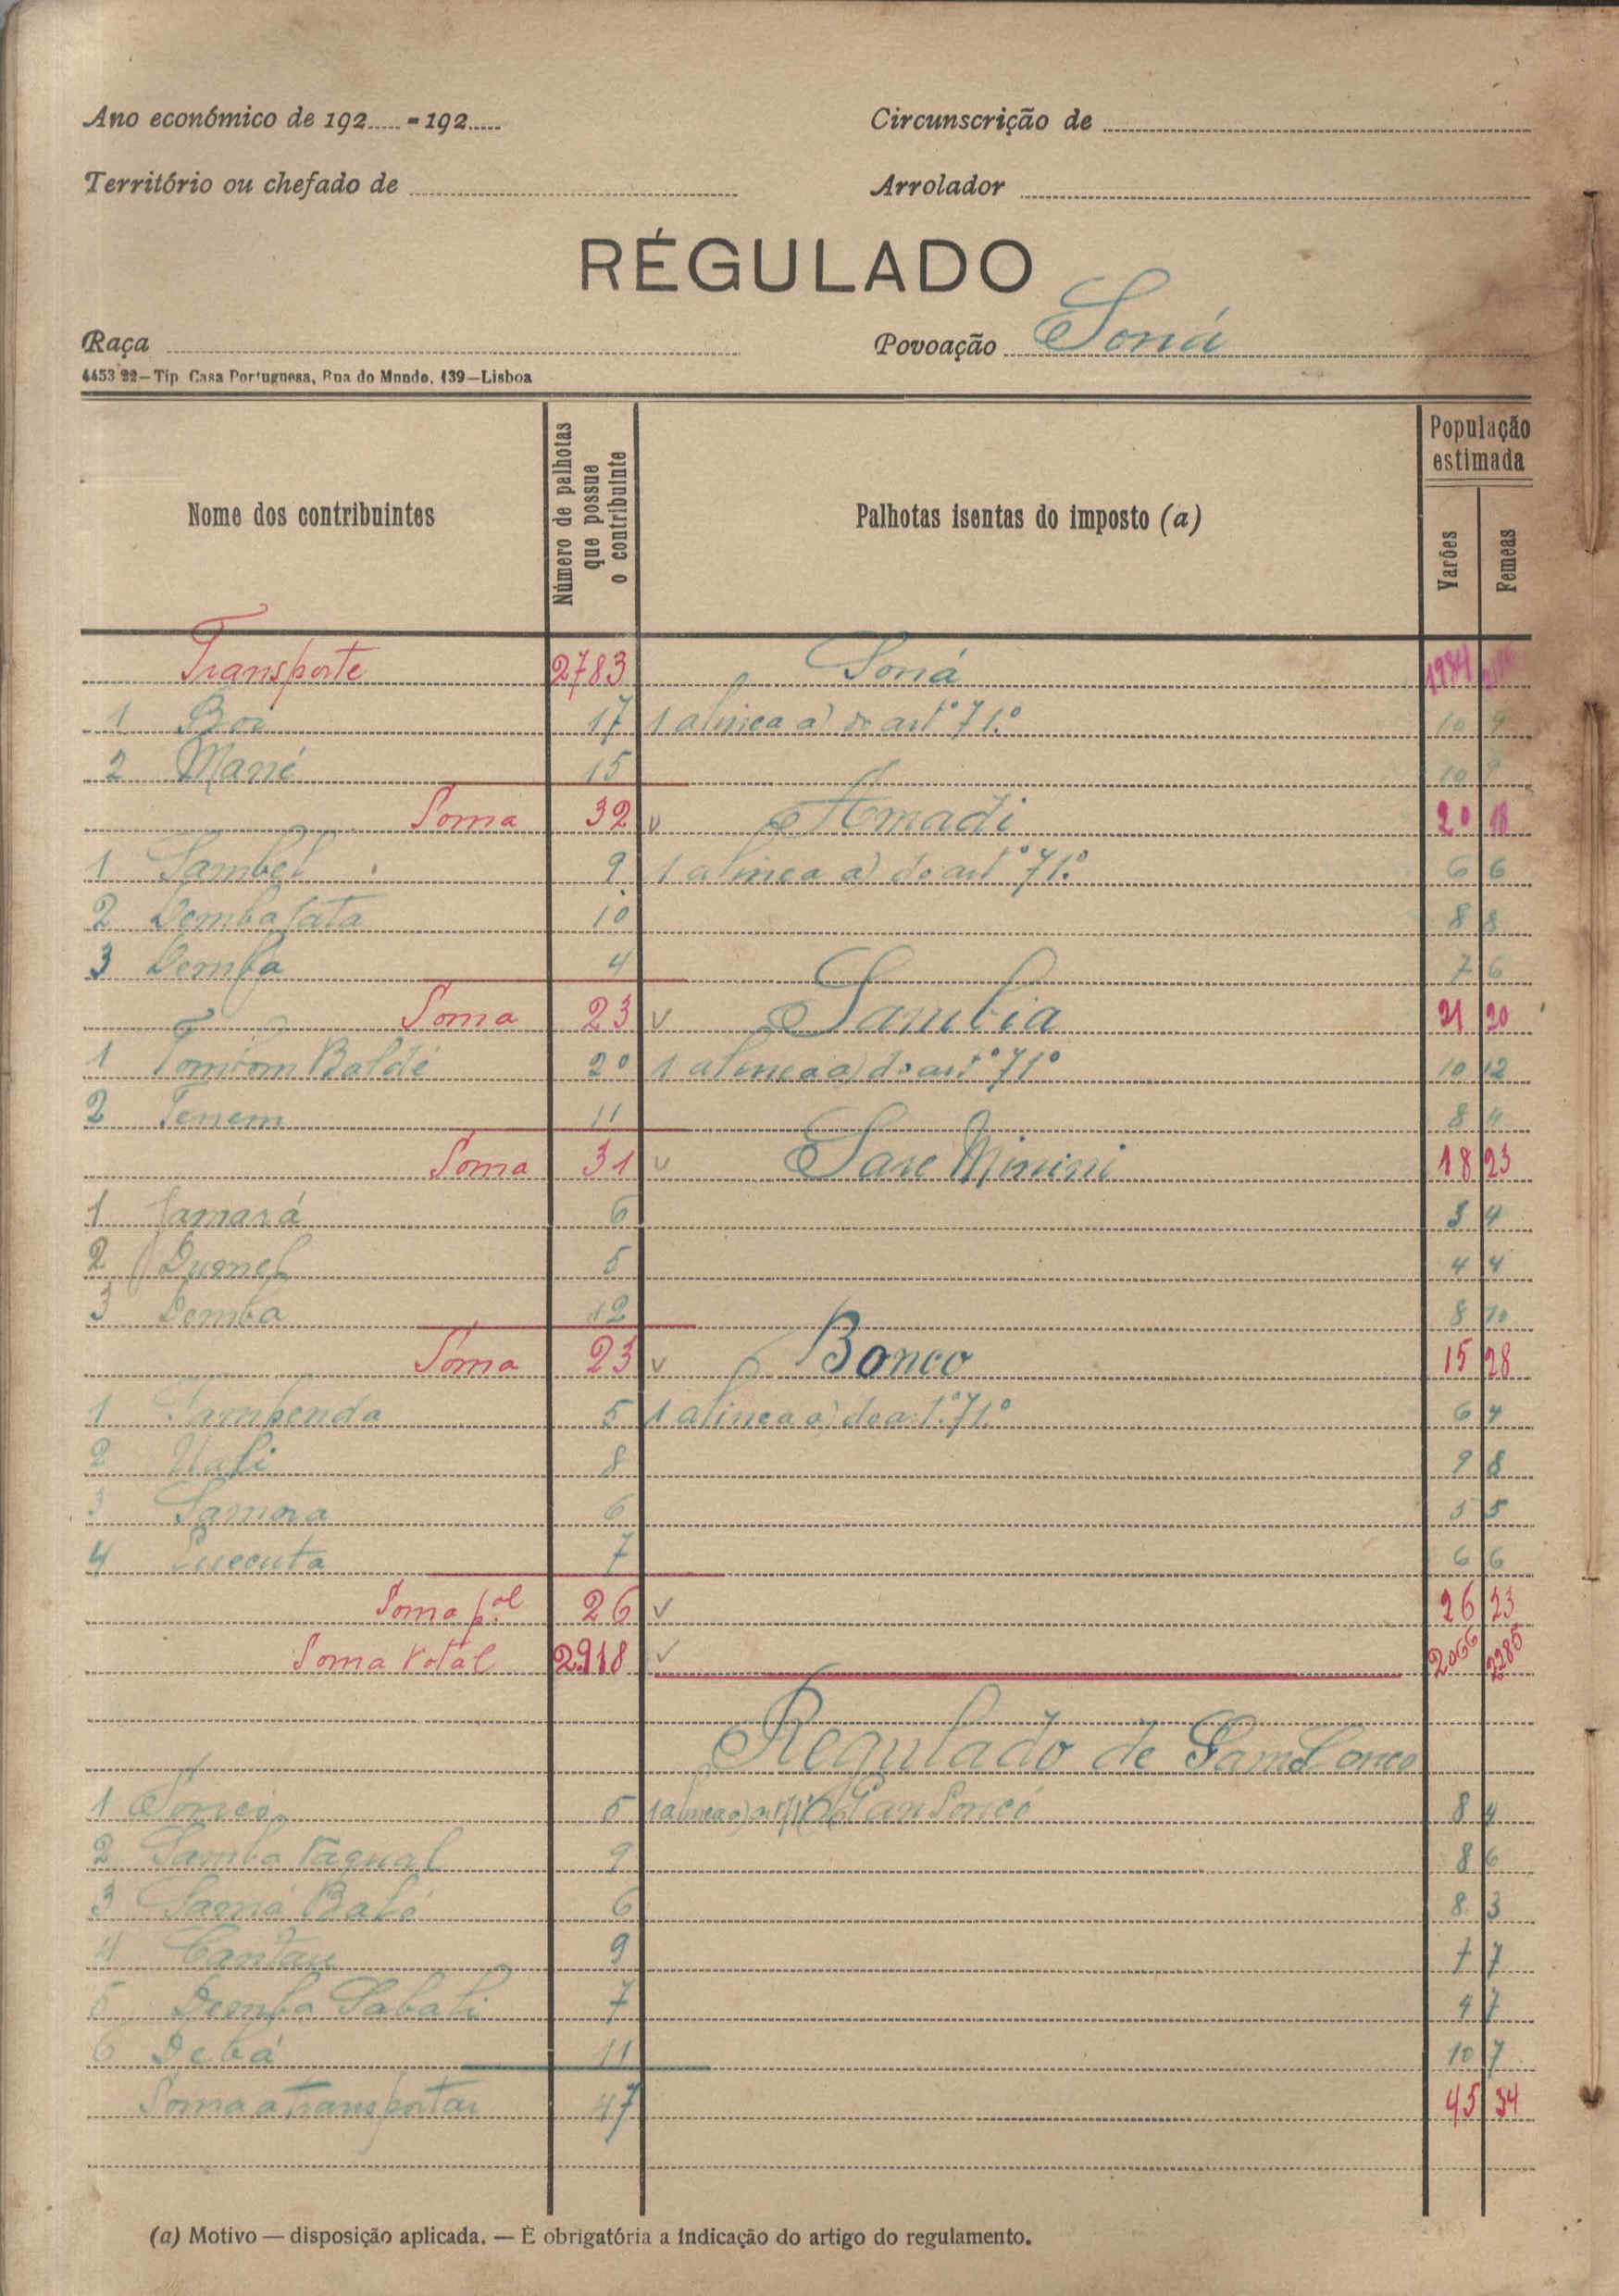 Ano económico de 192..... - 192.....
Circunscrição de
Território ou chefado de
Arrolador
RÉGULADO
Raça
Povoação Soná
4453 22—Tip Casa Portuguesa, Rua do Mundo, 139—Lisboa
Nome dos contribuintes
Número de palhotas que possue o contribuinte
Palhotas isentas do imposto (a)
População estimada
Varões
Femeas
Transporte 2783 Soná 1984
1 17 1 alinea a) do artº 71.º 10 9
2 Mané 15 10 9
Soma 32 v Amadi 20 18
1 Sambel 9 1 alinea a) do artº 71.º 6 6
2 Demba Tata 10 8 8
3 Demba 4 7 6
Soma 23 v Sambia 21 20
1 Tomtom Baldé 20 1 alinea a) do artº 71º 10 12
2 Tenem 11 8 11
Soma 31 v Sare Minini 18 23
1 Samará 6 3 4
2 5 4 4
3 Demba 12 8 10
Soma 23 v Bonco 15 28
1 5 1 alinea a) do art.º 71.º 6 4
2 Uali 8 9 8
3 Samora 6 5 5
4 7 6 6
Soma p.al 26 v 26 23
Soma total 2918 v 2066 2285
Regulado de
1 5 8 4
2 Samba 9 8 6
3 6 8 3
4 9 7 7
5 Demba Sabali 7 4 7
6 Debá 11 10 7
Soma a transportar 47 45 34
(a) Motivo — disposição aplicada. — É obrigatória a indicação do artigo do regulamento.